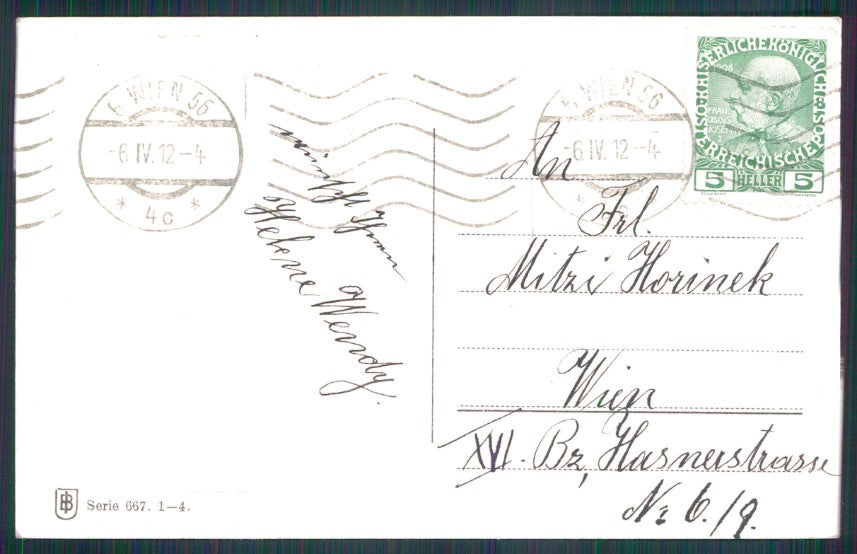 6 WIEN 56
-6.IV.12-4
* 4c *
6 WIEN 56
-6.IV.12-4
KAISERLICHEKÖNIGLICHE
ÖSTERREICHISCHEPOST
1908
FRAN
CISCVS
JOSEF I
5 HELLER 5
wünscht Ihnen
Helene Wendy.
An
Frl.
Mitzi Horinek
Wien
XVI. Bz, Hasnerstrasse
Nr 6./9.
BI
Serie 667. 1—4.